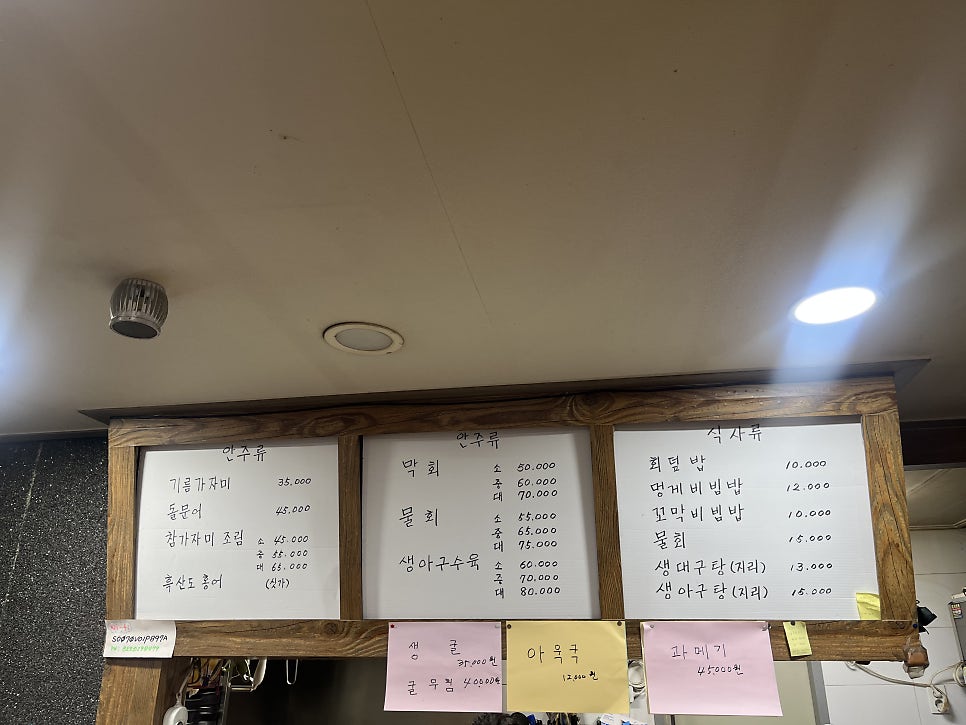 안주류
기름가자미 35.000
돌문어 45.000
참가자미 조림 소 45.000
중 55.000
대 65.000
흑산도 홍어 (싯가)
안주류
막회 소 50.000
중 60.000
대 70.000
물회 소 55.000
중 65.000
대 75.000
생아구수육 소 60.000
중 70.000
대 80.000
식사류
회덮밥 10.000
멍게비빔밥 12.000
꼬막비빔밥 10.000
물회 15.000
생대구탕(지리) 13.000
생아구탕(지리) 15.000
생굴 35,000원
굴무침 40,000원
아욱국
12,000원
과메기
45,000원